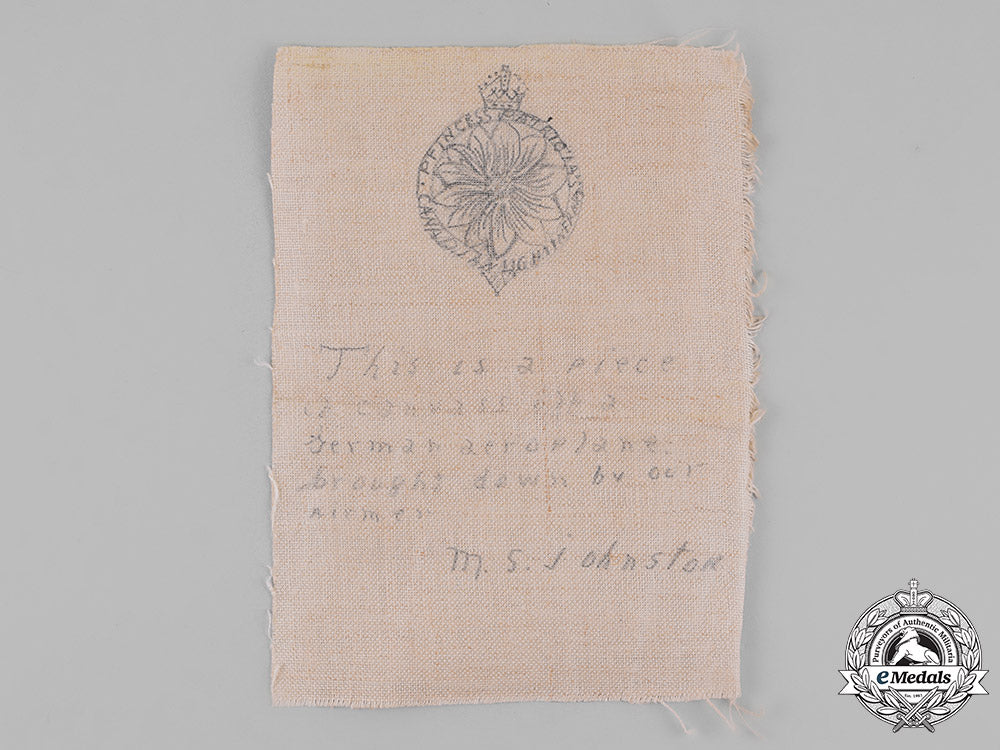 PRINCESS PATRICIA'S
CANADIAN LIGHT INFANTRY
This is a piece
of canvass off a
German aeroplane.
brought down by our
airmen
M. S. Johnston
Purveyors of Authentic Militaria
eMedals